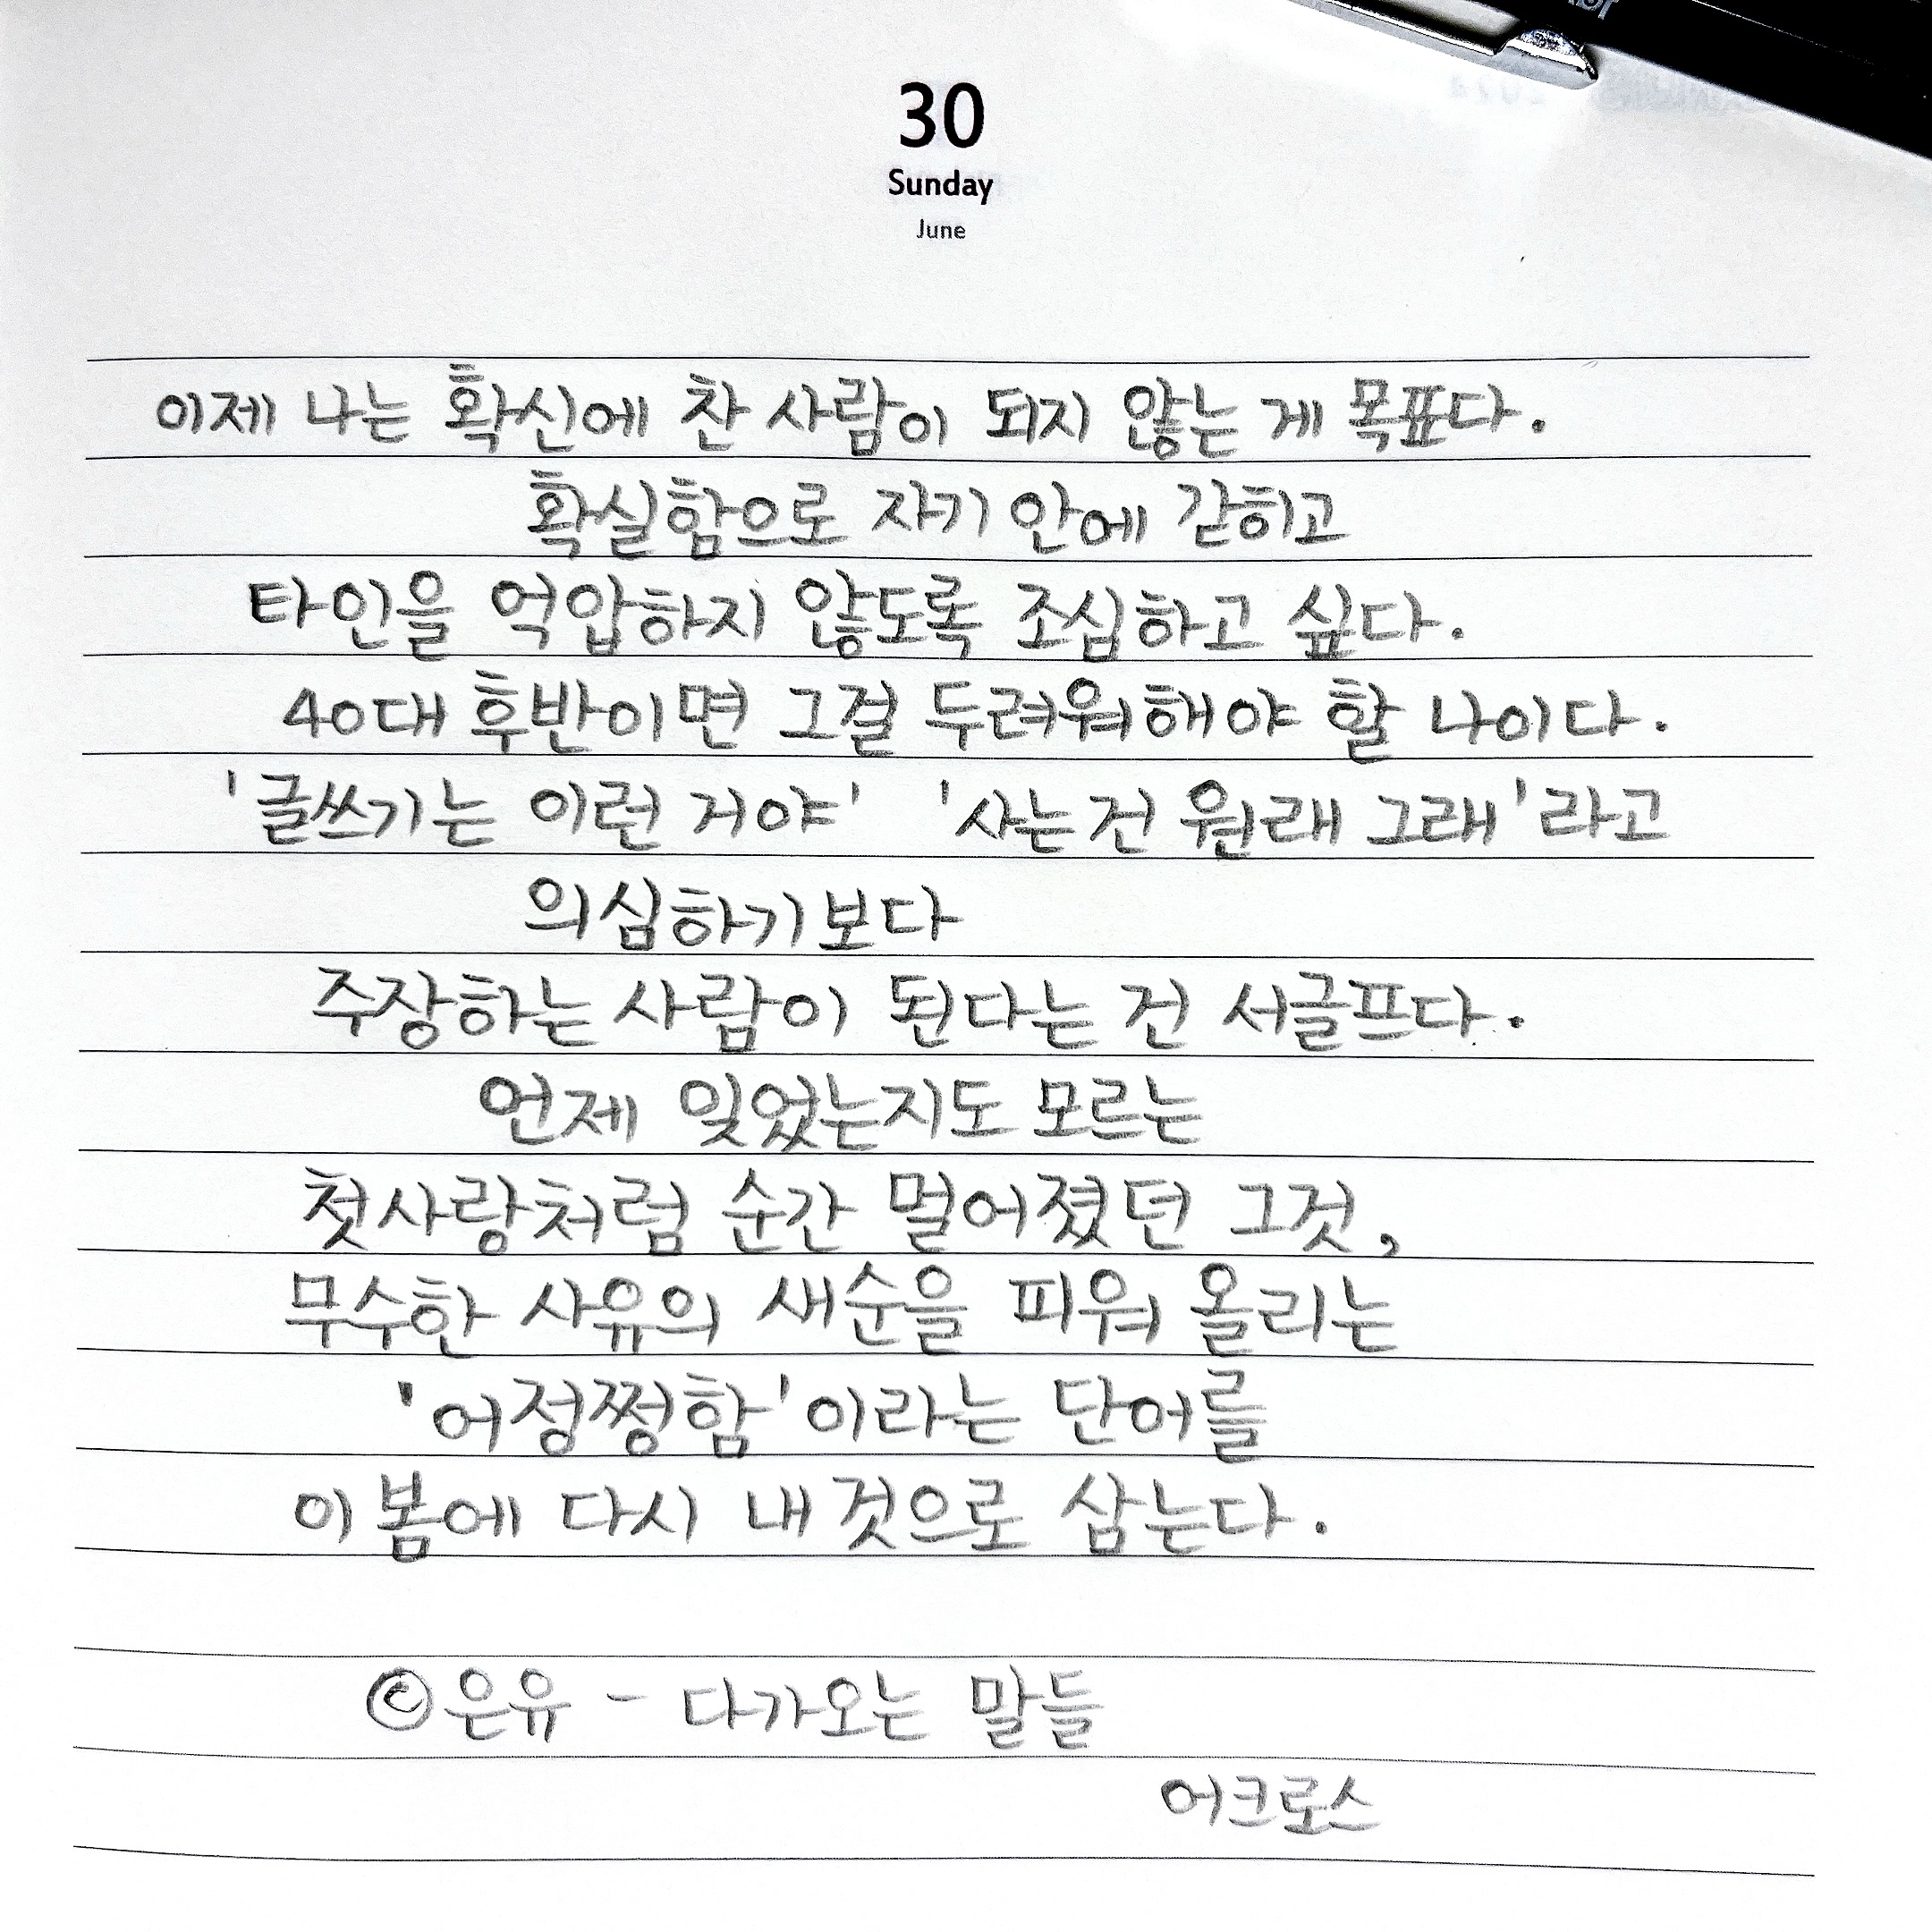 30
Sunday
June
이제 나는 확신에 찬 사람이 되지 않는 게 목표다.
확실함으로 자기 안에 갇히고
타인을 억압하지 않도록 조심하고 싶다.
40대 후반이면 그걸 두려워해야 할 나이다.
'글쓰기는 이런 거야' '사는 건 원래 그래'라고
의심하기보다
주장하는 사람이 된다는 건 서글프다.
언제 잊었는지도 모르는
첫사랑처럼 순간 멀어졌던 그것,
무수한 사유의 새순을 피워 올리는
'어정쩡함'이라는 단어를
이 봄에 다시 내 것으로 삼는다.
©은유 - 다가오는 말들
어크로스